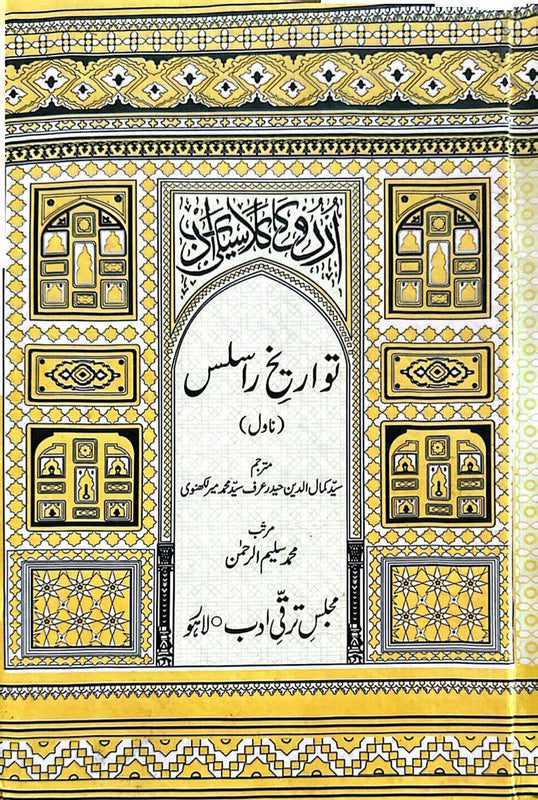 اُردو کا کلاسیکی ادب
تواریخِ راسلس
(ناول)
مترجم
سیّد کمال الدین حیدر عرف سیّد محمد میر لکھنوی
مرتّب
محمد سلیم الرحمٰن
مجلسِ ترقّیِ ادب ○ لاہور